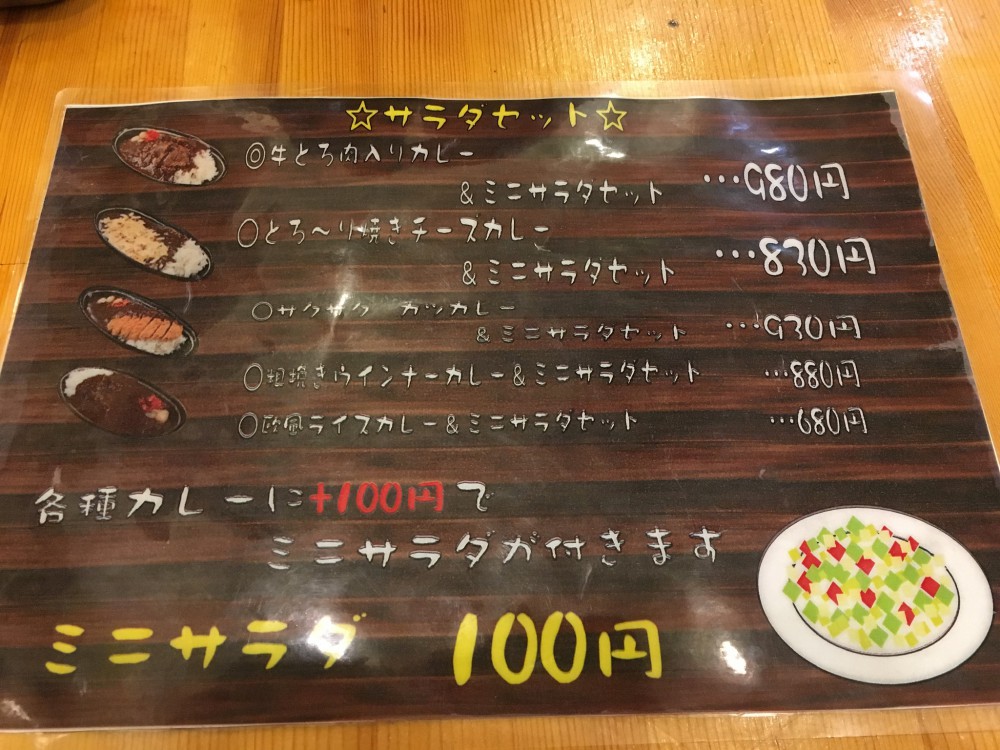 ☆サラダセット☆
◎牛とろ肉入りカレー
&ミニサラダセット …980円
○とろ〜り焼きチーズカレー
&ミニサラダセット …830円
○サクサク カツカレー
&ミニサラダセット …930円
○粗挽きウインナーカレー&ミニサラダセット …880円
○欧風ライスカレー&ミニサラダセット …680円
各種カレーに+100円で
ミニサラダが付きます
ミニサラダ 100円